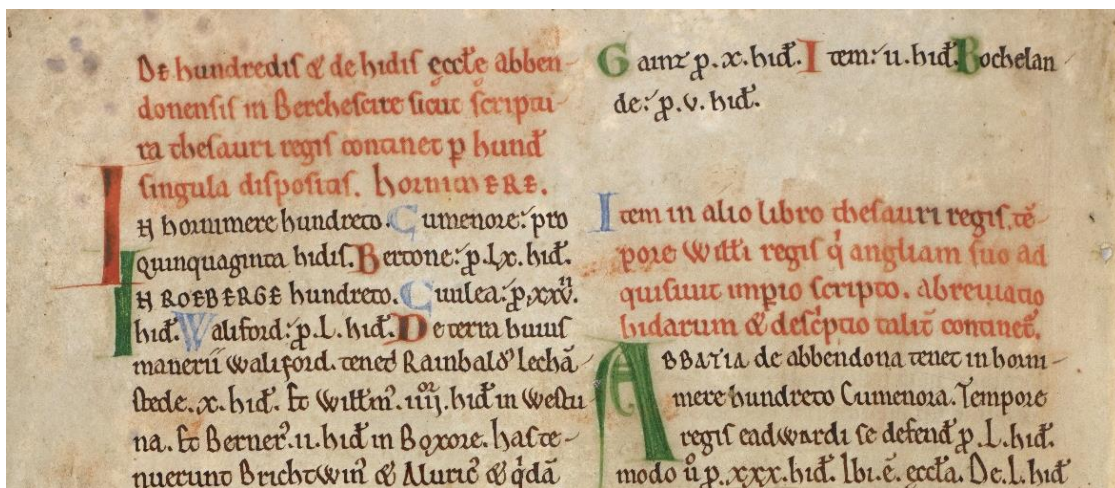 De hundredis & de hidis eccłe abben-
donensis in Berchescire sicut scriptu-
ra thesauri regis continet ꝑ hund̄
singula dispositas. hornimERE.
IN hornimere hundreto. Cumenore: pro
quinquaginta hidis. Bertone: p. Lx. hid̄.
IN ROEBERGE hundreto. Cuulea: p. xxv.
hid̄. Waliford: p. L. hid̄. De terra huius
manerii Waliford. tened Rainbaldꝰ lechā-
stede. x. hid̄. Et Willm̄. iiij. hid̄ in Westu-
na. Et Bernerꝰ. ii. hid̄ in Boxore. has te-
nuerunt Brichtwinꝰ & Aluricꝰ & q̇dā
Gainz p. x. hid̄. Item: ii. hid̄. Bochelan-
de: p. v. hid̄.
Item in alio libro thesauri regis. tē-
pore Wiłłi regis q̇ angliam suo ad
quisiuit imꝑio scripto. abreuiatio
hidarum & descꝑtio talit̄ continet̄.
ABBATIA de abbendona tenet in horni-
mere hundreto Cumenora. Tempore
regis eadwardi se defend̄ p. L. hid̄.
modo ů p. xxx. hid̄. Ibi. ē. eccła. De. L. hid̄